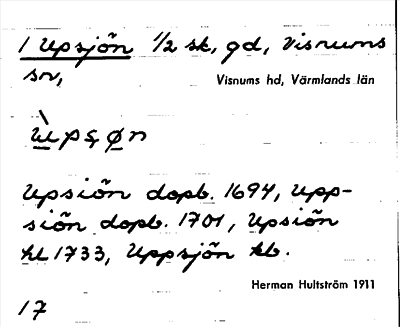 1 Upsjön 1/2 sk, gd, Visnums
sn,
Visnums hd, Värmlands län
ùpsøn
Upsiön dopb. 1694, Upp-
siön dopb. 1701, Upsiön
hl 1733, Uppsjön kb.
Herman Hultström 1911
17